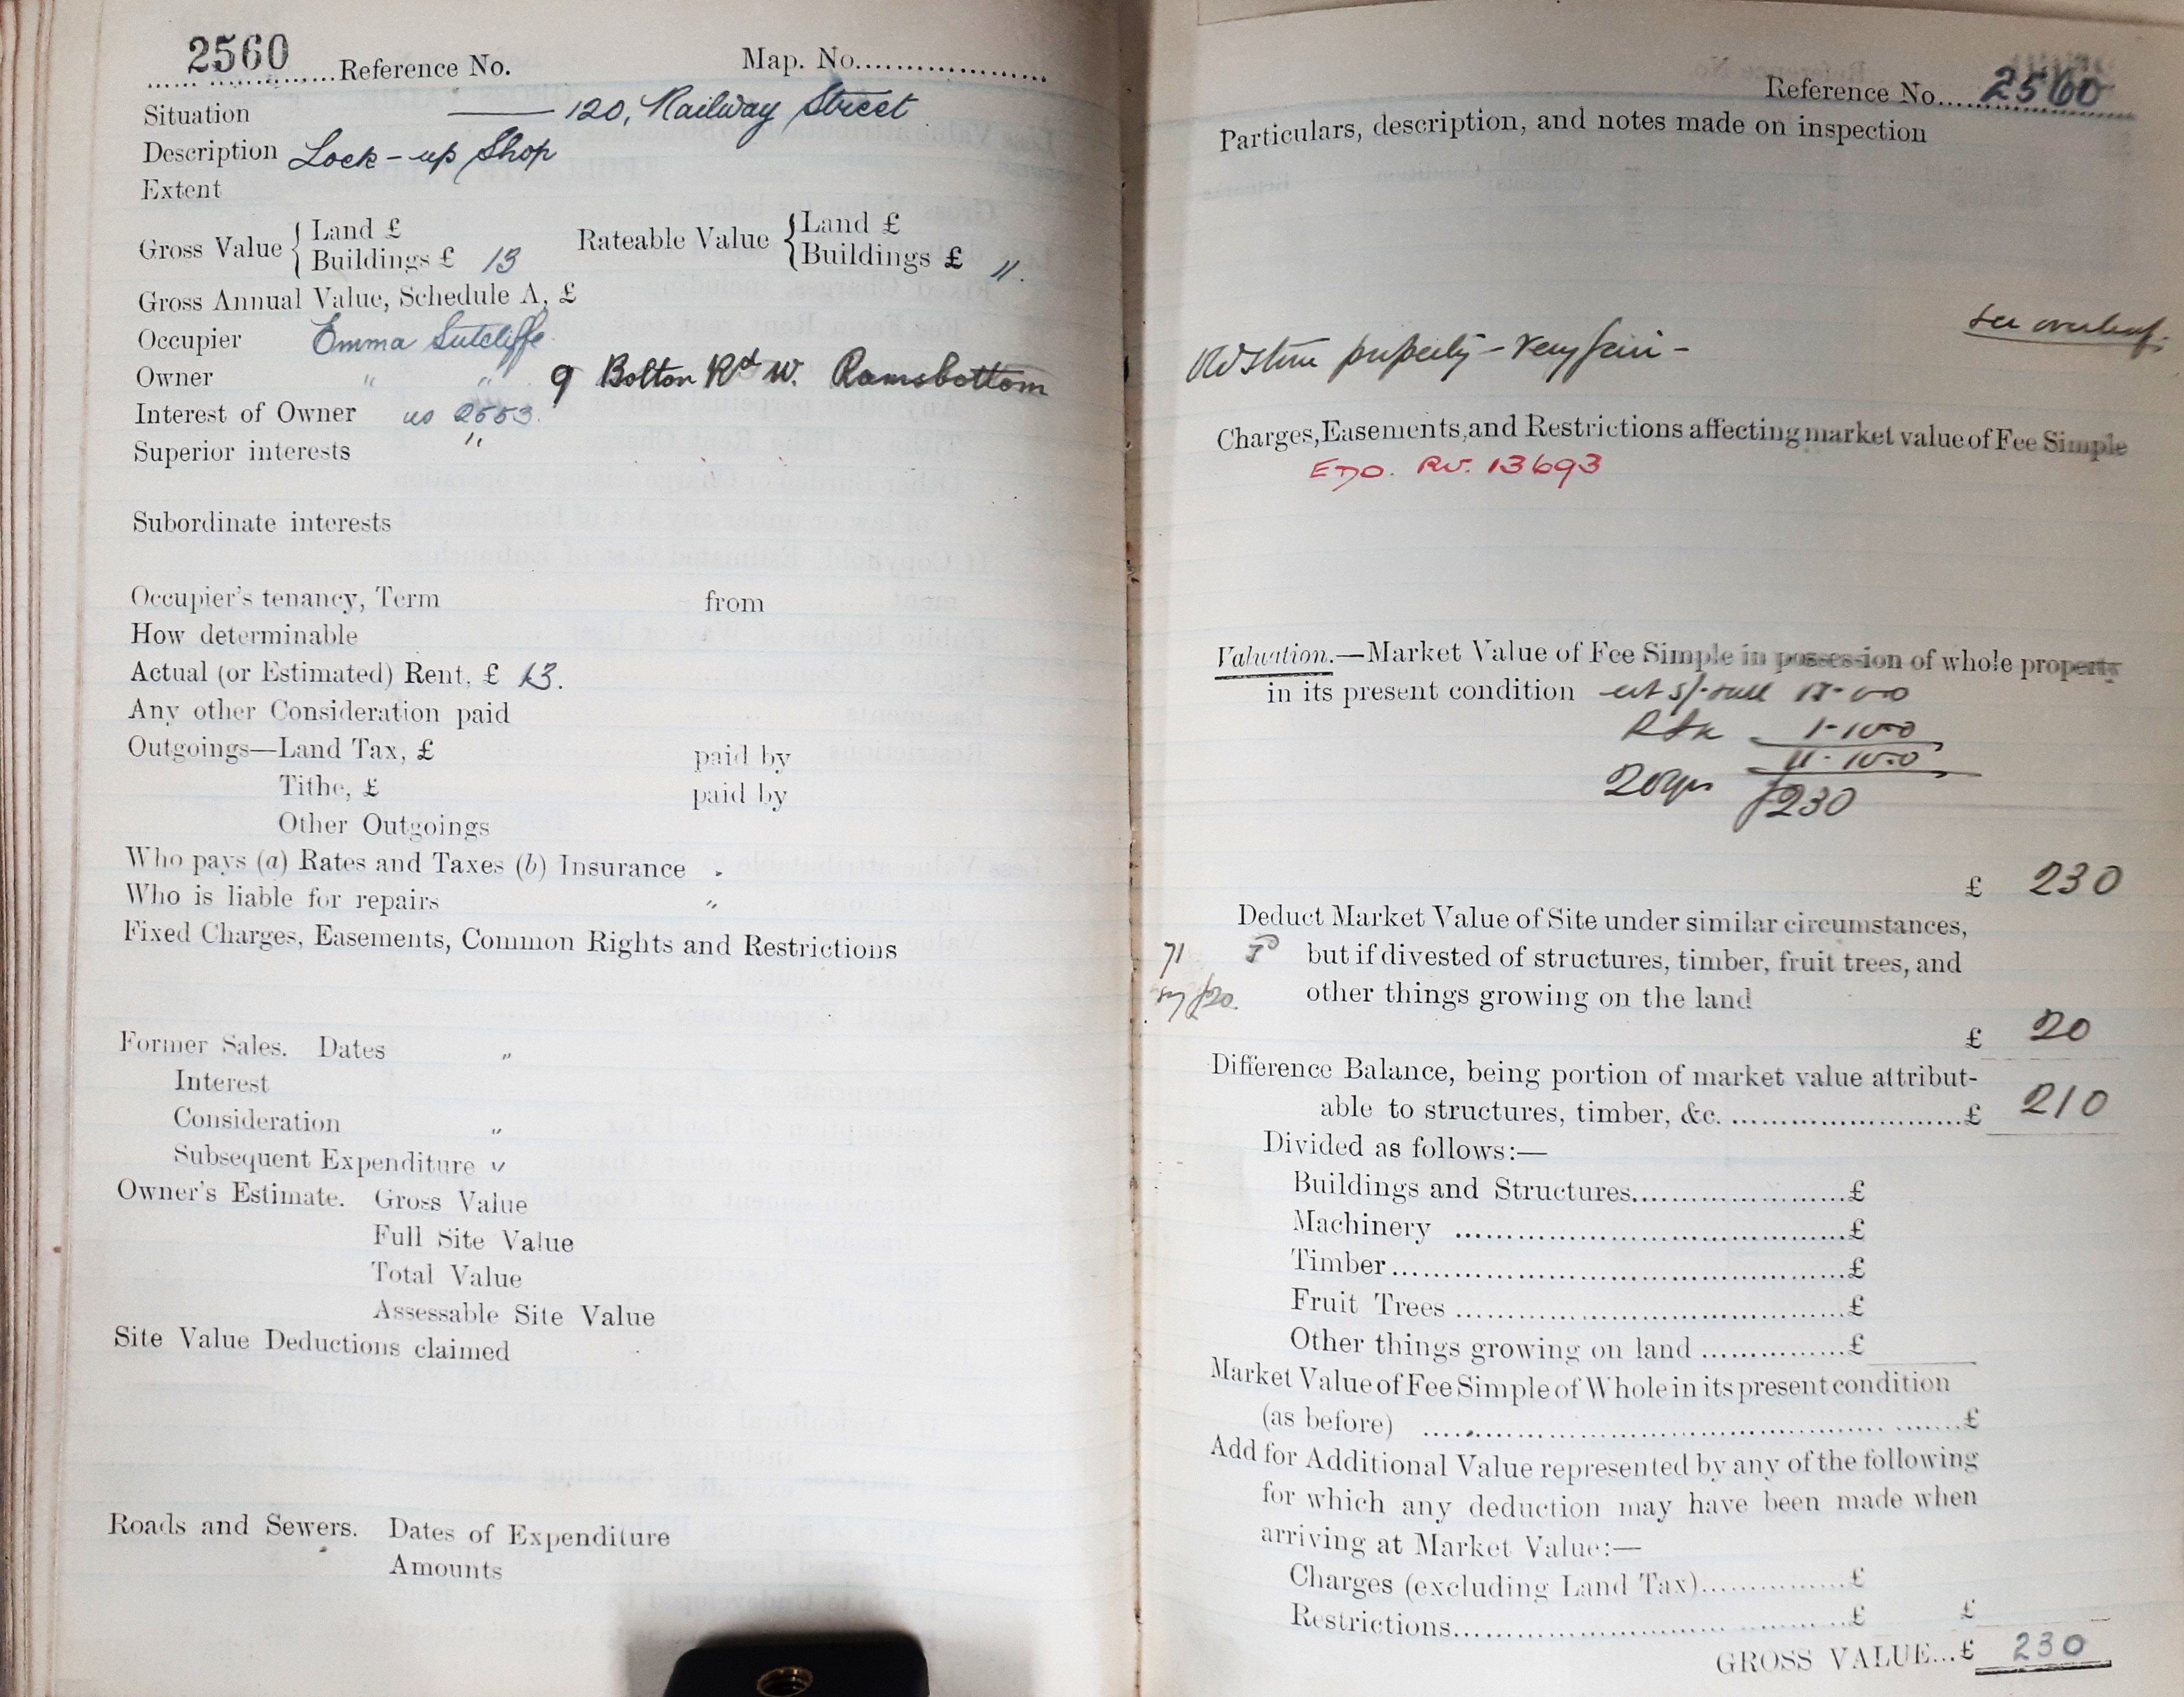 2560 Reference No. Map. No.
Situation 120, Railway Street
Description Lock-up Shop
Extent
Gross Value { Land £
Buildings £ 13
Rateable Value { Land £
Buildings £ 11.
Gross Annual Value, Schedule A, £
Occupier Emma Sutcliffe
Owner " " 9 Bolton Rd W. Ramsbottom
Interest of Owner as 2553.
Superior interests "
Subordinate interests
Occupier's tenancy, Term from
How determinable
Actual (or Estimated) Rent, £ 13.
Any other Consideration paid
Outgoings—Land Tax, £ paid by
Tithe, £ paid by
Other Outgoings
Who pays (a) Rates and Taxes (b) Insurance "
Who is liable for repairs "
Fixed Charges, Easements, Common Rights and Restrictions
Former Sales. Dates "
Interest
Consideration "
Subsequent Expenditure "
Owner's Estimate. Gross Value
Full Site Value
Total Value
Assessable Site Value
Site Value Deductions claimed
Roads and Sewers. Dates of Expenditure
Amounts
Reference No. 2560
Particulars, description, and notes made on inspection
see overleaf.
Old stone property - very fair -
Charges, Easements, and Restrictions affecting market value of Fee Simple
EDO. Rv. 13693
Valuation.—Market Value of Fee Simple in possession of whole property
in its present condition est 5/-
1-10-0
11-10-0
20yrs £230
£ 230
Deduct Market Value of Site under similar circumstances,
71 but if divested of structures, timber, fruit trees, and
£20. other things growing on the land
£ 20
Difference Balance, being portion of market value attribut-
able to structures, timber, &c. £ 210
Divided as follows:—
Buildings and Structures £
Machinery £
Timber £
Fruit Trees £
Other things growing on land £
Market Value of Fee Simple of Whole in its present condition
(as before) £
Add for Additional Value represented by any of the following
for which any deduction may have been made when
arriving at Market Value:—
Charges (excluding Land Tax) £
Restrictions £ £
GROSS VALUE... £ 230